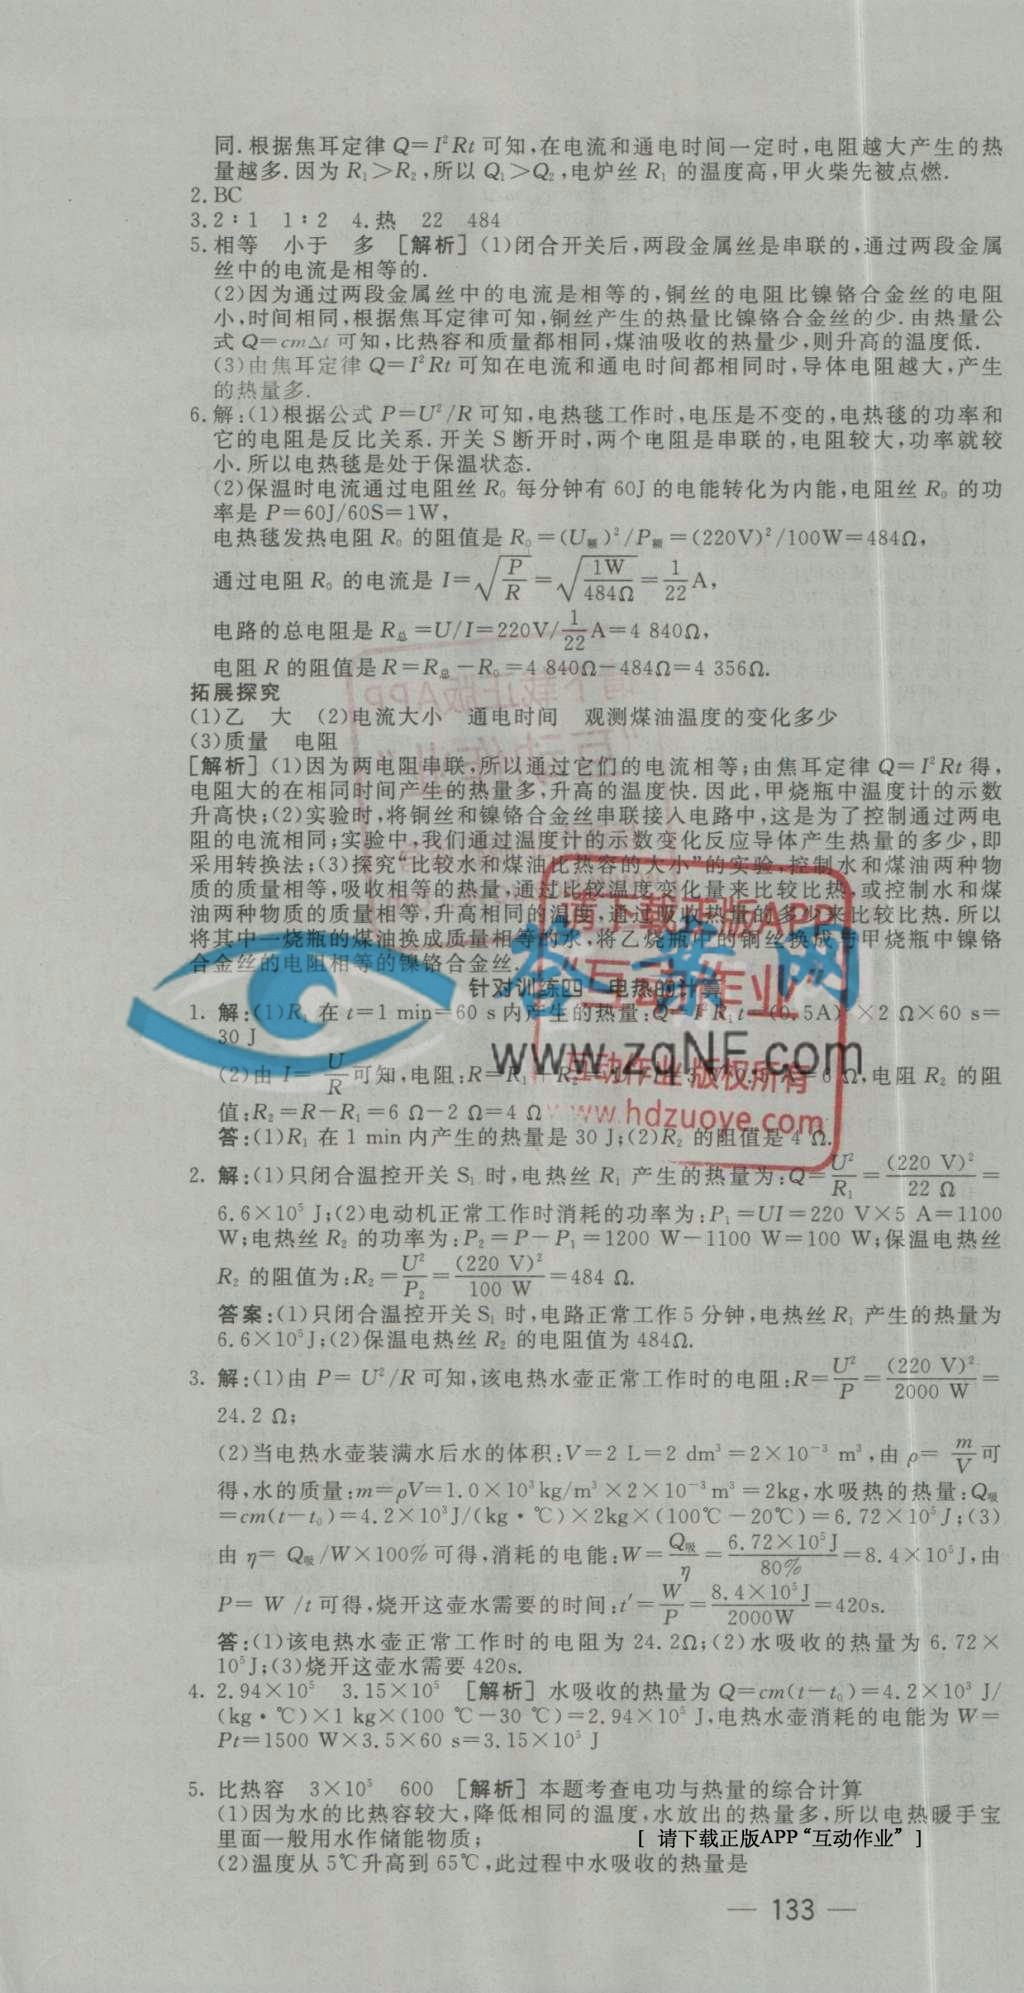 同.根据焦耳定律 Q=I²Rt 可知,在电流和通电时间一定时,电阻越大产生的热
量越多.因为 R₁>R₂,所以 Q₁>Q₂,电炉丝 R₁ 的温度高,甲火柴先被点燃.
2.BC
3.2∶1 1∶2 4.热 22 484
5.相等 小于 多 [解析](1)闭合开关后,两段金属丝是串联的,通过两段金属
丝中的电流是相等的.
(2)因为通过两段金属丝中的电流是相等的,铜丝的电阻比镍铬合金丝的电阻
小,时间相同,根据焦耳定律可知,铜丝产生的热量比镍铬合金丝的少.由热量公
式 Q=cm△t 可知,比热容和质量都相同,煤油吸收的热量少,则升高的温度低.
(3)由焦耳定律 Q=I²Rt 可知在电流和通电时间都相同时,导体电阻越大,产生
的热量多.
6.解:(1)根据公式 P=U²/R 可知,电热毯工作时,电压是不变的,电热毯的功率和
它的电阻是反比关系.开关 S 断开时,两个电阻是串联的,电阻较大,功率就较
小.所以电热毯是处于保温状态.
(2)保温时电流通过电阻丝 R₀ 每分钟有 60J 的电能转化为内能,电阻丝 R₀ 的功
率是 P=60J/60S=1W,
电热毯发热电阻 R₀ 的阻值是 R₀=(U额)²/P额=(220V)²/100W=484Ω,
通过电阻 R₀ 的电流是 I=√(P/R)=√(1W/484Ω)=1/22 A,
电路的总电阻是 R总=U/I=220V/(1/22)A=4 840Ω,
电阻 R 的阻值是 R=R总-R₀=4 840Ω-484Ω=4 356Ω.
拓展探究
(1)乙 大 (2)电流大小 通电时间 观测煤油温度的变化多少
(3)质量 电阻
[解析](1)因为两电阻串联,所以通过它们的电流相等;由焦耳定律 Q=I²Rt 得,
电阻大的在相同时间产生的热量多,升高的温度快.因此,甲烧瓶中温度计的示数
升高快;(2)实验时,将铜丝和镍铬合金丝串联接入电路中,这是为了控制通过两电
阻的电流相同;实验中,我们通过温度计的示数变化反应导体产生热量的多少,即
采用转换法;(3)探究“比较水和煤油比热容的大小”的实验,控制水和煤油两种物
质的质量相等,吸收相等的热量,通过比较温度变化量来比较比热,或控制水和煤
油两种物质的质量相等,升高相同的温度,通过吸收热量的多少来比较比热.所以
将其中一烧瓶的煤油换成质量相等的水,将乙烧瓶中的铜丝换成与甲烧瓶中镍铬
合金丝的电阻相等的镍铬合金丝.
针对训练四 电热的计算
1. 解:(1)R₁ 在 t=1 min=60 s 内产生的热量:Q=I²R₁t=(0.5A)²×2 Ω×60 s=
30 J
(2)由 I=U/R 可知,电阻:R=R₁+R₂ 6 Ω,电阻 R₂ 的阻
值:R₂=R-R₁=6 Ω-2 Ω=4 Ω
答:(1)R₁ 在 1 min 内产生的热量是 30 J;(2)R₂ 的阻值是 4 Ω.
2. 解:(1)只闭合温控开关 S₁ 时,电热丝 R₁ 产生的热量为:Q=U²/R₁=(220 V)²/22 Ω=
6.6×10⁵ J;(2)电动机正常工作时消耗的功率为:P₁=UI=220 V×5 A=1100
W;电热丝 R₂ 的功率为:P₂=P-P₁=1200 W-1100 W=100 W;保温电热丝
R₂ 的阻值为:R₂=U²/P₂=(220 V)²/100 W=484 Ω.
答案:(1)只闭合温控开关 S₁ 时,电路正常工作 5 分钟,电热丝 R₁ 产生的热量为
6.6×10⁵J;(2)保温电热丝 R₂ 的电阻值为 484Ω.
3. 解:(1)由 P= U²/R 可知,该电热水壶正常工作时的电阻:R=U²/P=(220 V)²/2000 W=
24.2 Ω;
(2)当电热水壶装满水后水的体积:V=2 L=2 dm³=2×10⁻³ m³,由 ρ=m/V 可
得,水的质量:m=ρV=1.0×10³kg/m³×2×10⁻³m³=2kg,水吸热的热量:Q吸
=cm(t-t₀)=4.2×10³J/(kg·℃)×2kg×(100℃-20℃)=6.72×10⁵J;(3)
由 η= Q吸/W×100%可得,消耗的电能:W=Q吸/η=6.72×10⁵J/80%=8.4×10⁵J,由
P= W /t 可得,烧开这壶水需要的时间:t′=W/P=8.4×10⁵J/2000W=420s.
答:(1)该电热水壶正常工作时的电阻为 24.2Ω;(2)水吸收的热量为 6.72×
10⁵J;(3)烧开这壶水需要 420s.
4. 2.94×10⁵ 3.15×10⁵ [解析] 水吸收的热量为 Q=cm(t-t₀)=4.2×10³ J/
(kg·℃)×1 kg×(100 ℃-30 ℃)=2.94×10⁵ J,电热水壶消耗的电能为 W=
Pt=1500 W×3.5×60 s=3.15×10⁵ J
5. 比热容 3×10⁵ 600 [解析] 本题考查电功与热量的综合计算
(1)因为水的比热容较大,降低相同的温度,水放出的热量多,所以电热暖手宝
里面一般用水作储能物质;
[ 请下载正版APP“互动作业” ]
(2)温度从 5℃升高到 65℃,此过程中水吸收的热量是
— 133 —
请下载正版APP
“互动作业”
互动作业 版权所有
www.hdzuoye.com
答案网
www.zqNF.com